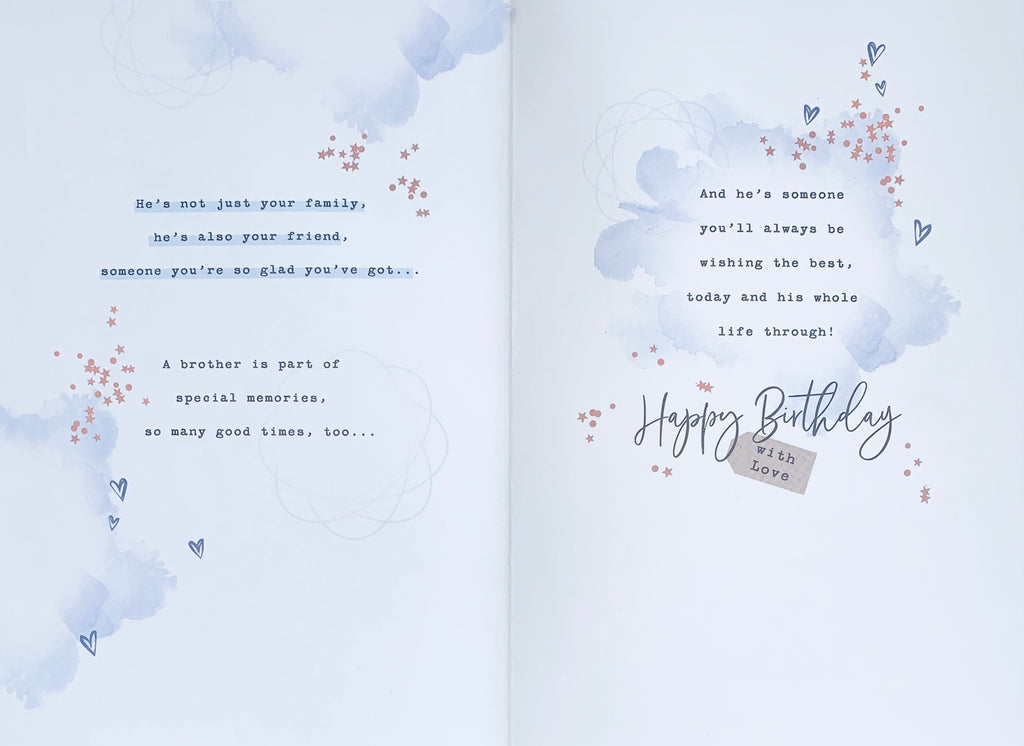 He's not just your family,
he's also your friend,
someone you're so glad you've got...
A brother is part of
special memories,
so many good times, too...
And he's someone
you'll always be
wishing the best,
today and his whole
life through!
Happy Birthday
with
Love